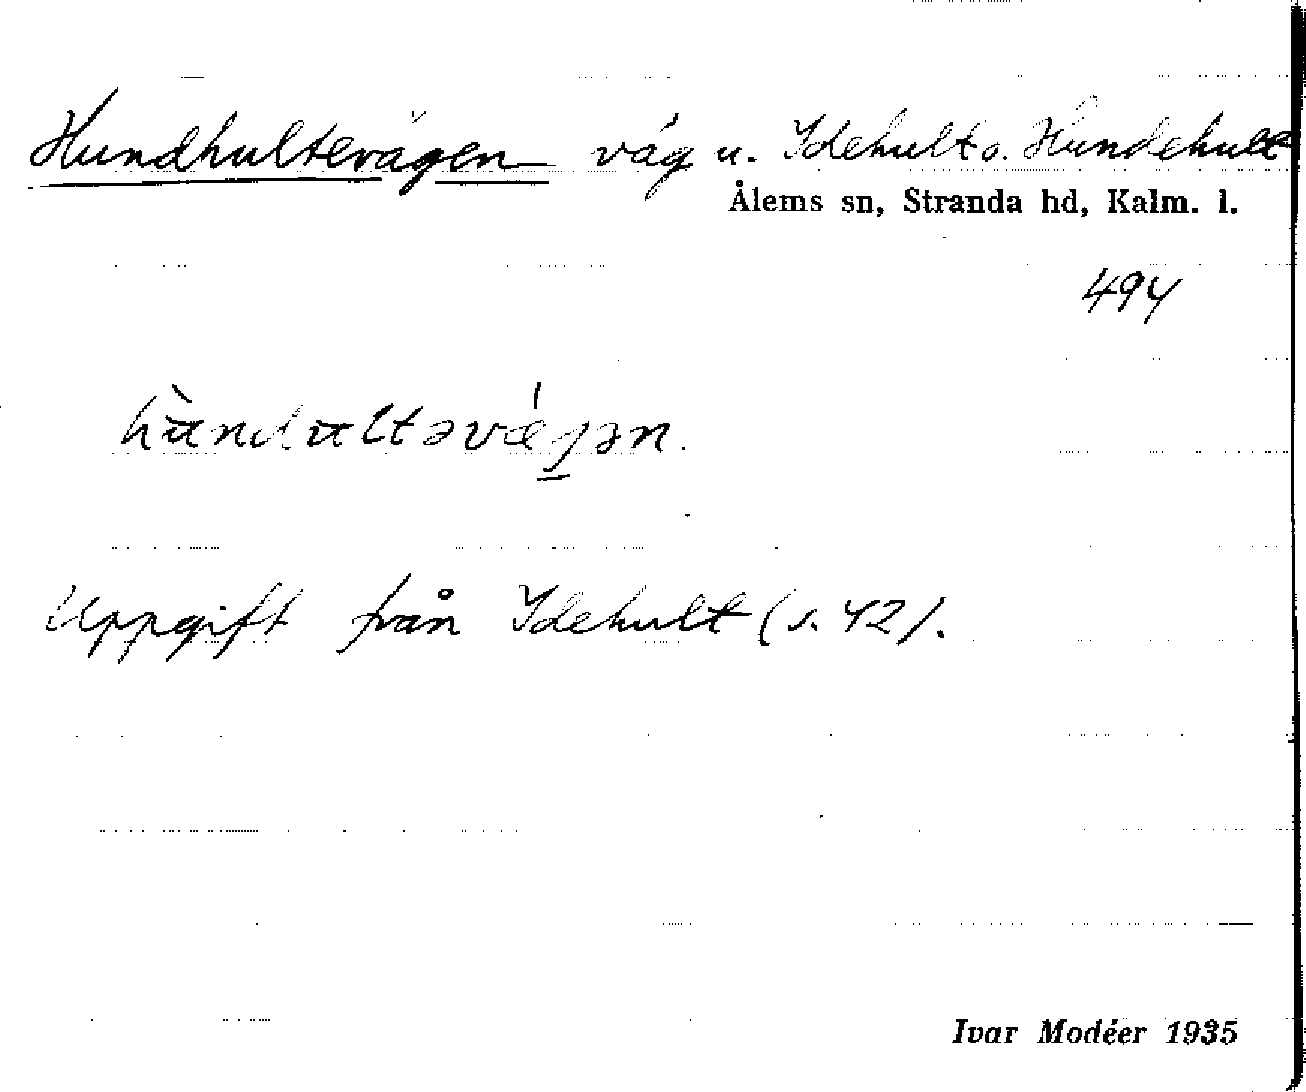 Hundhultevägen väg u. Idehult o. Hundehult
Ålems sn, Stranda hd, Kalm. l.
494
Uppgift från Idehult (s. 42).
Ivar Modéer 1935